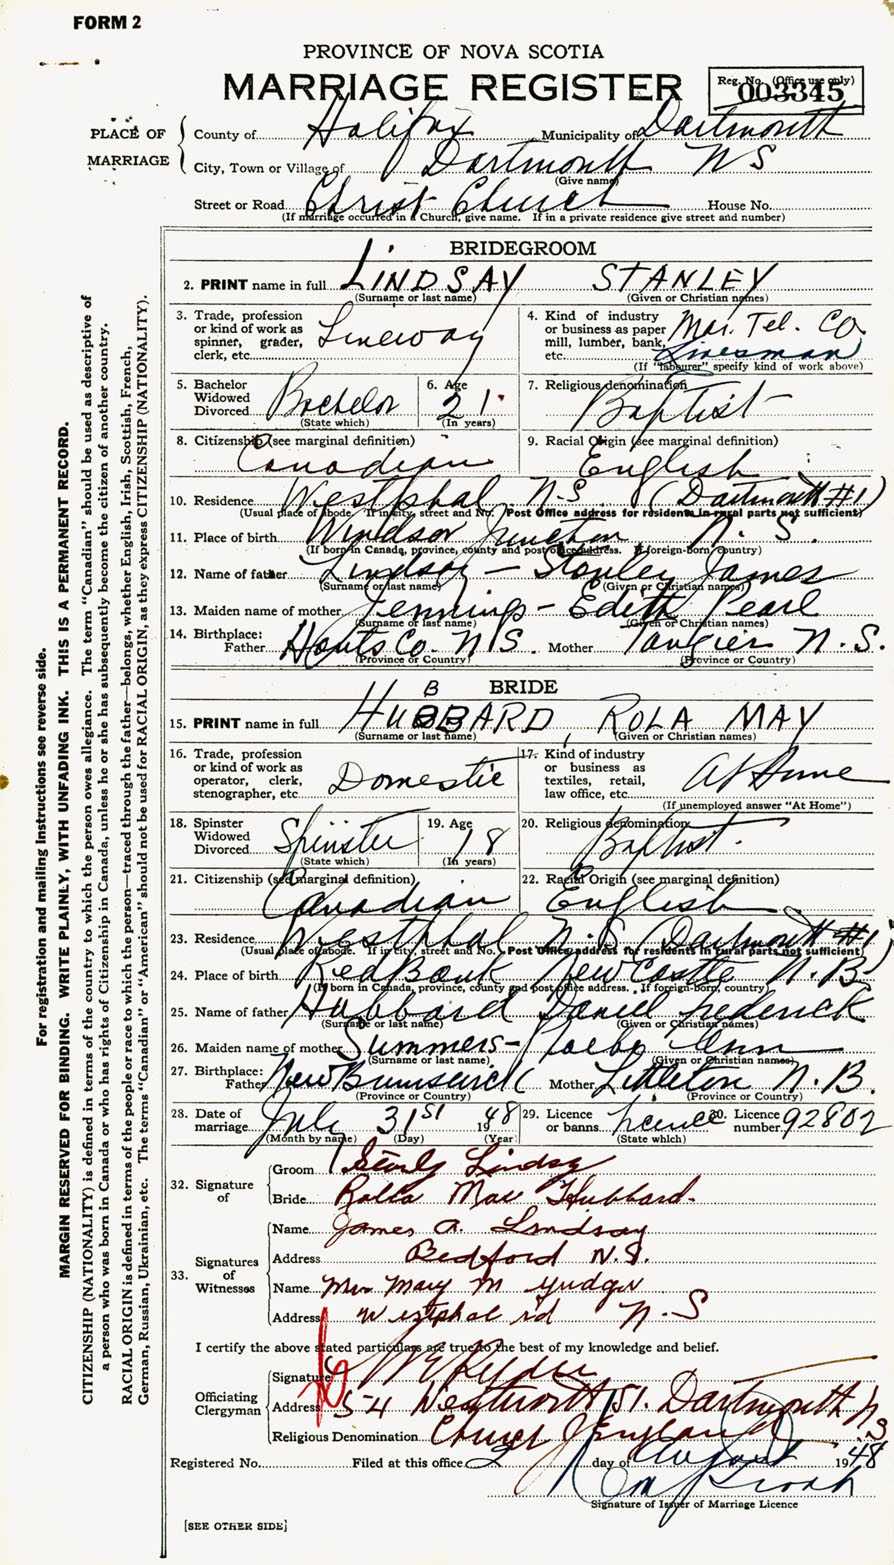 FORM 2
PROVINCE OF NOVA SCOTIA
MARRIAGE REGISTER
Reg. No. (Office use only)
003345
PLACE OF MARRIAGE
County of Halifax Municipality of Dartmouth
City, Town or Village of Dartmouth N S
(Give name)
Street or Road Christ Church House No.
(If marriage occurred in a Church, give name. If in a private residence give street and number)
BRIDEGROOM
2. PRINT name in full LINDSAY STANLEY
(Surname or last name) (Given or Christian names)
3. Trade, profession or kind of work as spinner, grader, clerk, etc.
4. Kind of industry or business as paper mill, lumber, bank, etc. Mar. Tel. Co. Linesman
(If "labourer" specify kind of work above)
5. Bachelor Widowed Divorced Bachelor
(State which)
6. Age 21
(In years)
7. Religious denomination Baptist
8. Citizenship (see marginal definition) Canadian
9. Racial Origin (see marginal definition) English
10. Residence Westphal N.S (Dartmouth #1)
(Usual place of abode. If in city, street and No. Post Office address for residents in rural parts not sufficient)
11. Place of birth Windsor Junction N. S.
(If born in Canada, province, county and post office address. If foreign-born, country)
12. Name of father Lindsay — Stanley James
(Surname or last name) (Given or Christian names)
13. Maiden name of mother Jennings - Edith Pearl
(Surname or last name) (Given or Christian names)
14. Birthplace: Father Hants Co. N S. Mother Tangier N. S.
(Province or Country) (Province or Country)
BRIDE
B
15. PRINT name in full HUBBARD, ROLA MAY
(Surname or last name) (Given or Christian names)
16. Trade, profession or kind of work as operator, clerk, stenographer, etc. Domestic
17. Kind of industry or business as textiles, retail, law office, etc. At Home
(If unemployed answer "At Home")
18. Spinster Widowed Divorced Spinster
(State which)
19. Age 18
(In years)
20. Religious denomination Baptist.
21. Citizenship (see marginal definition) Canadian
22. Racial Origin (see marginal definition) English
23. Residence Westphal N.S (Dartmouth #1)
(Usual place of abode. If in city, street and No. Post Office address for residents in rural parts not sufficient)
24. Place of birth RedBank New Castle N. B.
(If born in Canada, province, county and post office address. If foreign-born, country)
25. Name of father Hubbard Daniel Frederick
(Surname or last name) (Given or Christian names)
26. Maiden name of mother Summers - Phoebe Ann
(Surname or last name) (Given or Christian names)
27. Birthplace: Father New Brunswick Mother Littleton N. B.
(Province or Country) (Province or Country)
28. Date of marriage July 31st 1948
(Month by name) (Day) (Year)
29. Licence or banns licence
(State which)
30. Licence number 92802
32. Signature of
Groom Stanly Lindsay
Bride Rolla Mae Hubbard.
33. Signatures of Witnesses
Name James A. Lindsay
Address Bedford N.S.
Name Mrs Mary M
Address Westphal rd N-S
I certify the above stated particulars are true to the best of my knowledge and belief.
Officiating Clergyman
Signature
Address 54 Wentworth St. Dartmouth N S
Religious Denomination Church of England
Registered No. Filed at this office 2 day of August 1948
Signature of Issuer of Marriage Licence
[SEE OTHER SIDE]
For registration and mailing instructions see reverse side.
MARGIN RESERVED FOR BINDING. WRITE PLAINLY, WITH UNFADING INK. THIS IS A PERMANENT RECORD.
CITIZENSHIP (NATIONALITY) is defined in terms of the country to which the person owes allegiance. The term "Canadian" should be used as descriptive of
a person who was born in Canada or who has rights of Citizenship in Canada, unless he or she has subsequently become the citizen of another country.
RACIAL ORIGIN is defined in terms of the people or race to which the person—traced through the father—belongs, whether English, Irish, Scottish, French,
German, Russian, Ukrainian, etc. The terms "Canadian" or "American" should not be used for RACIAL ORIGIN, as they express CITIZENSHIP (NATIONALITY).